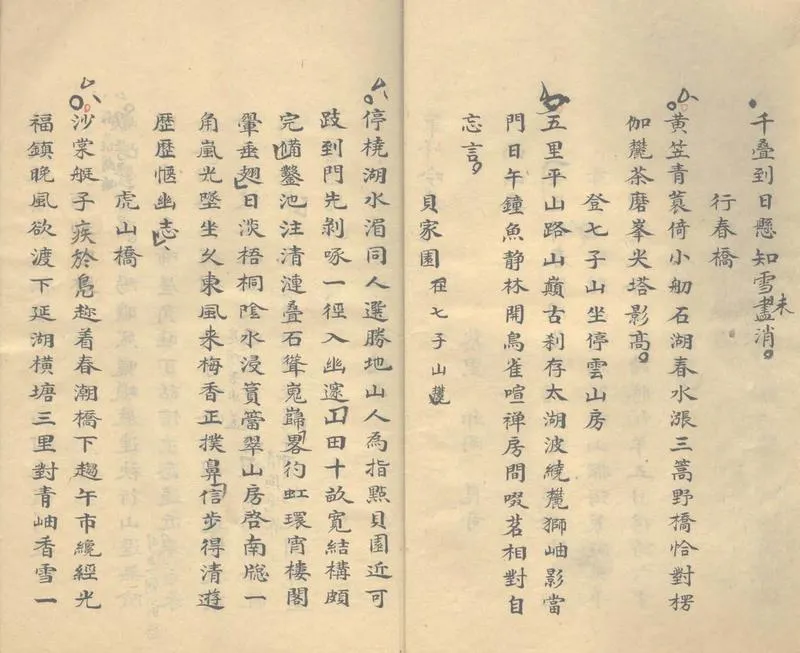 千叠到日懸知雪未盡消
行春橋
黄笠青蓑倚小舠石湖春水漲三篙野橋恰對楞
伽麓茶磨峯尖塔影高
登七子山坐停雲山房
五里平山路山巔古刹存太湖波繞麓獅岫影當
門日午鐘魚静林開鳥雀喧禅房間啜茗相對自
忘言
貝家園在七子山麓
停橈湖水湄同人選勝地山人為指點貝園近可
跂到門先剝啄一徑入幽邃山田十畝寛結構頗
完備鑿池注清漣叠石聳嵬巋畧彴虹環宵樓閣
翬垂翅日淡梧桐陰水浸篔簹翠山房啓南牕一
角嵐光墜坐久東風来梅香正撲鼻信步得清遊
歷歷愜幽志
虎山橋
沙棠艇子疾於鳧趂着春潮橋下趨午市纔經光
福鎮晚風欲渡下延湖横塘三里對青岫香雪一